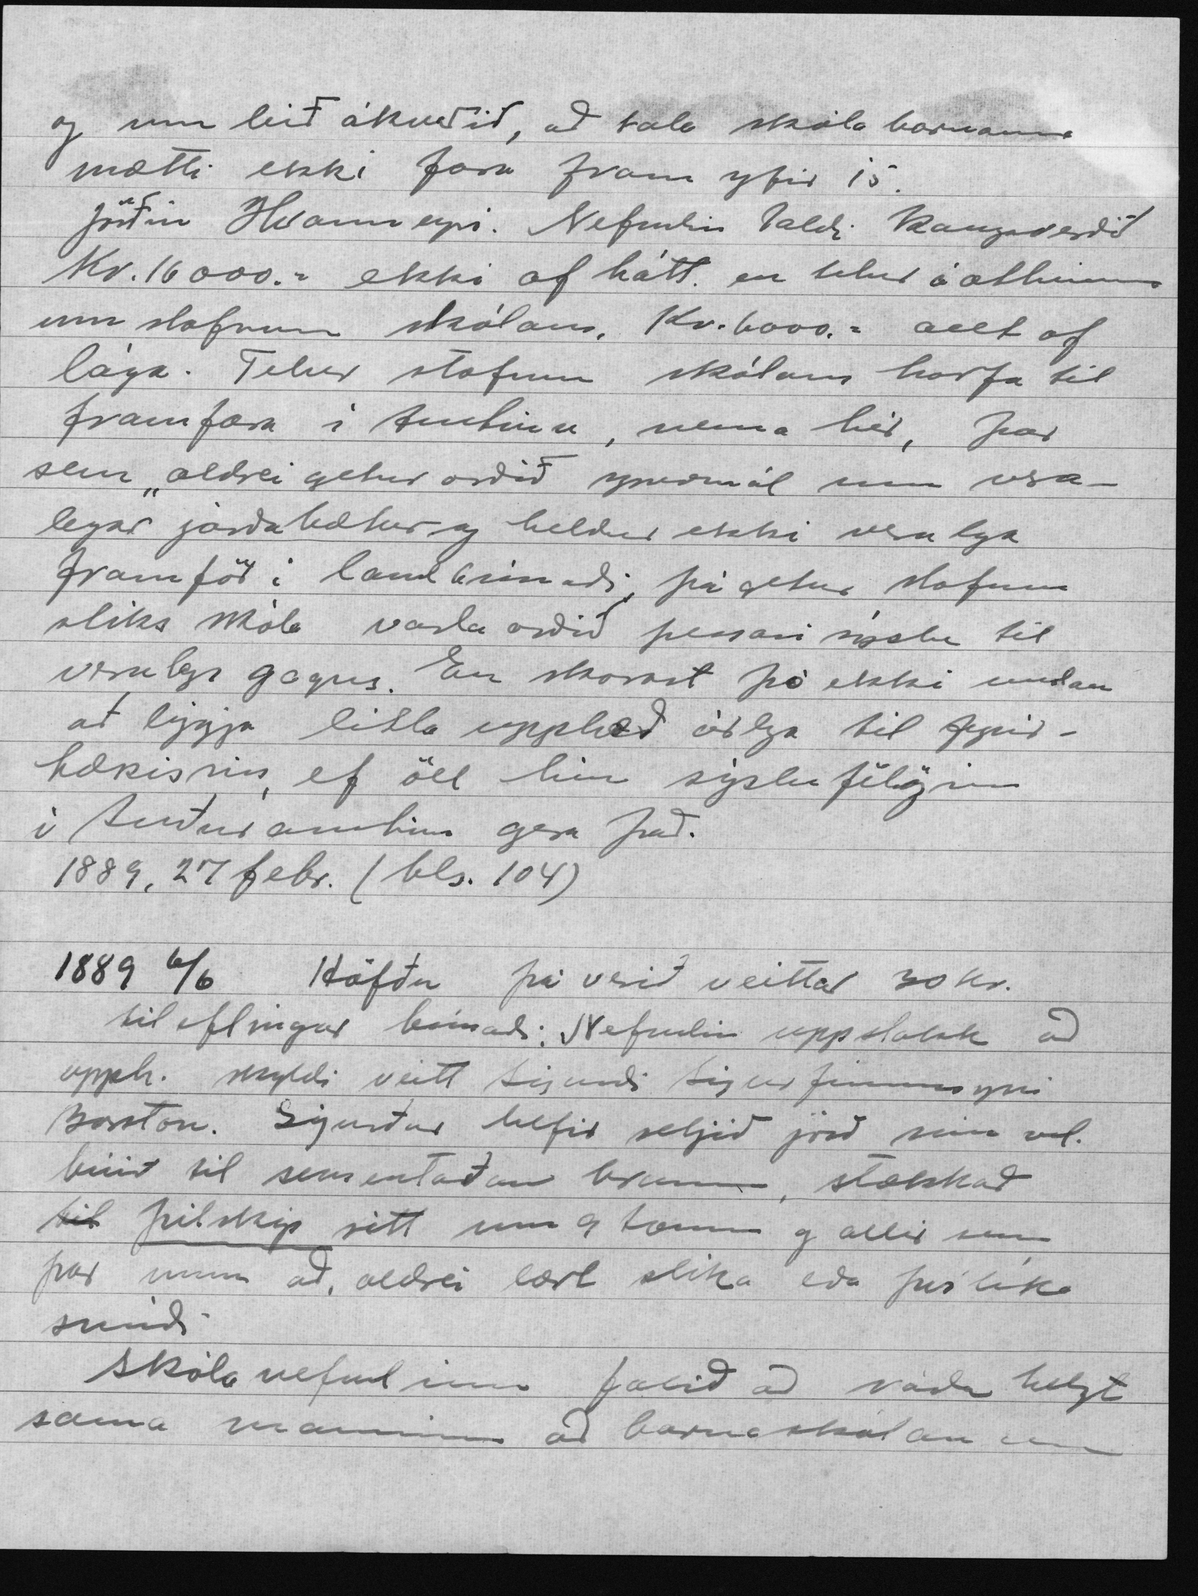 og um leið ákveðið, að tala skóla barnanna
mætti ekki fara fram yfir 15.
Jörðin Hvanneyri. Nefndin taldi kaupverðið
Kr. 16000.- ekki of hátt. en telur áætlunina
um stofnun skólans, Kr. 6000.- allt of
lága. Telur stofnun skólans horfa til
framfara í Amtinu, nema hér, þar
sem „aldrei getur orðið spursmál um veru-
legar jarðabætur og heldur ekki verulega
framför í landbúnaði, þá getur stofnun
slíks skóla varla orðið þessari sýslu til
verulegs gagns. En skorast þó ekki undan
að leggja litla upphæð árlega til fyrir-
tækisins, ef öll hin sýslufélögin
í Suðuramtinu gera það.
1889, 27 febr. (bls. 104)
1889 6/6 Höfðu þá verið veittar 30 kr.
til eflingar búnaði: Nefndin uppástakk að
upph. skyldi veitt Sigurði Sigurfinnssyni
Boston. Sigurður hefir setjið jörð sína vel.
búið til sementaðan brunn, stækkað
til þilskip sitt um 9 tonn og allir sem
þar unnu að, aldrei lært slíka eða þvílíka
smíði
Skólanefndinni falið að ráða helzt
sama manninn að barnaskólanum